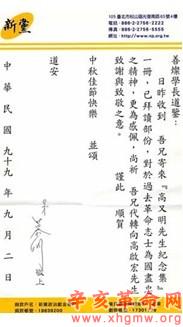 新黨
105 臺北市松山區光復南路65號4樓
電話:886-2-2756-2222
傳真:886-2-2756-5555
網址:http://www.np.org.tw
善燦學長道鑒:
日昨收到 吾兄寄來「高又明先生紀念集」
一冊,已拜讀部份,對於過去革命志士為國盡忠
之精神,更為感佩,尚祈 吾兄代轉向高啟宏先生
致謝與致敬之意。 謹此 順賀
中秋佳節快樂 並頌
道安
弟
敬上
中華民國九十九年九月二日
辛亥革命网
www.xhgmw.org